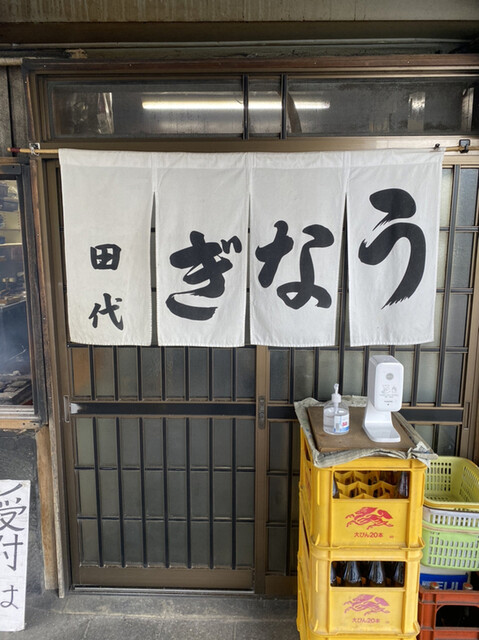 うなぎ
田代
大びん20本
大びん20本
受付
は